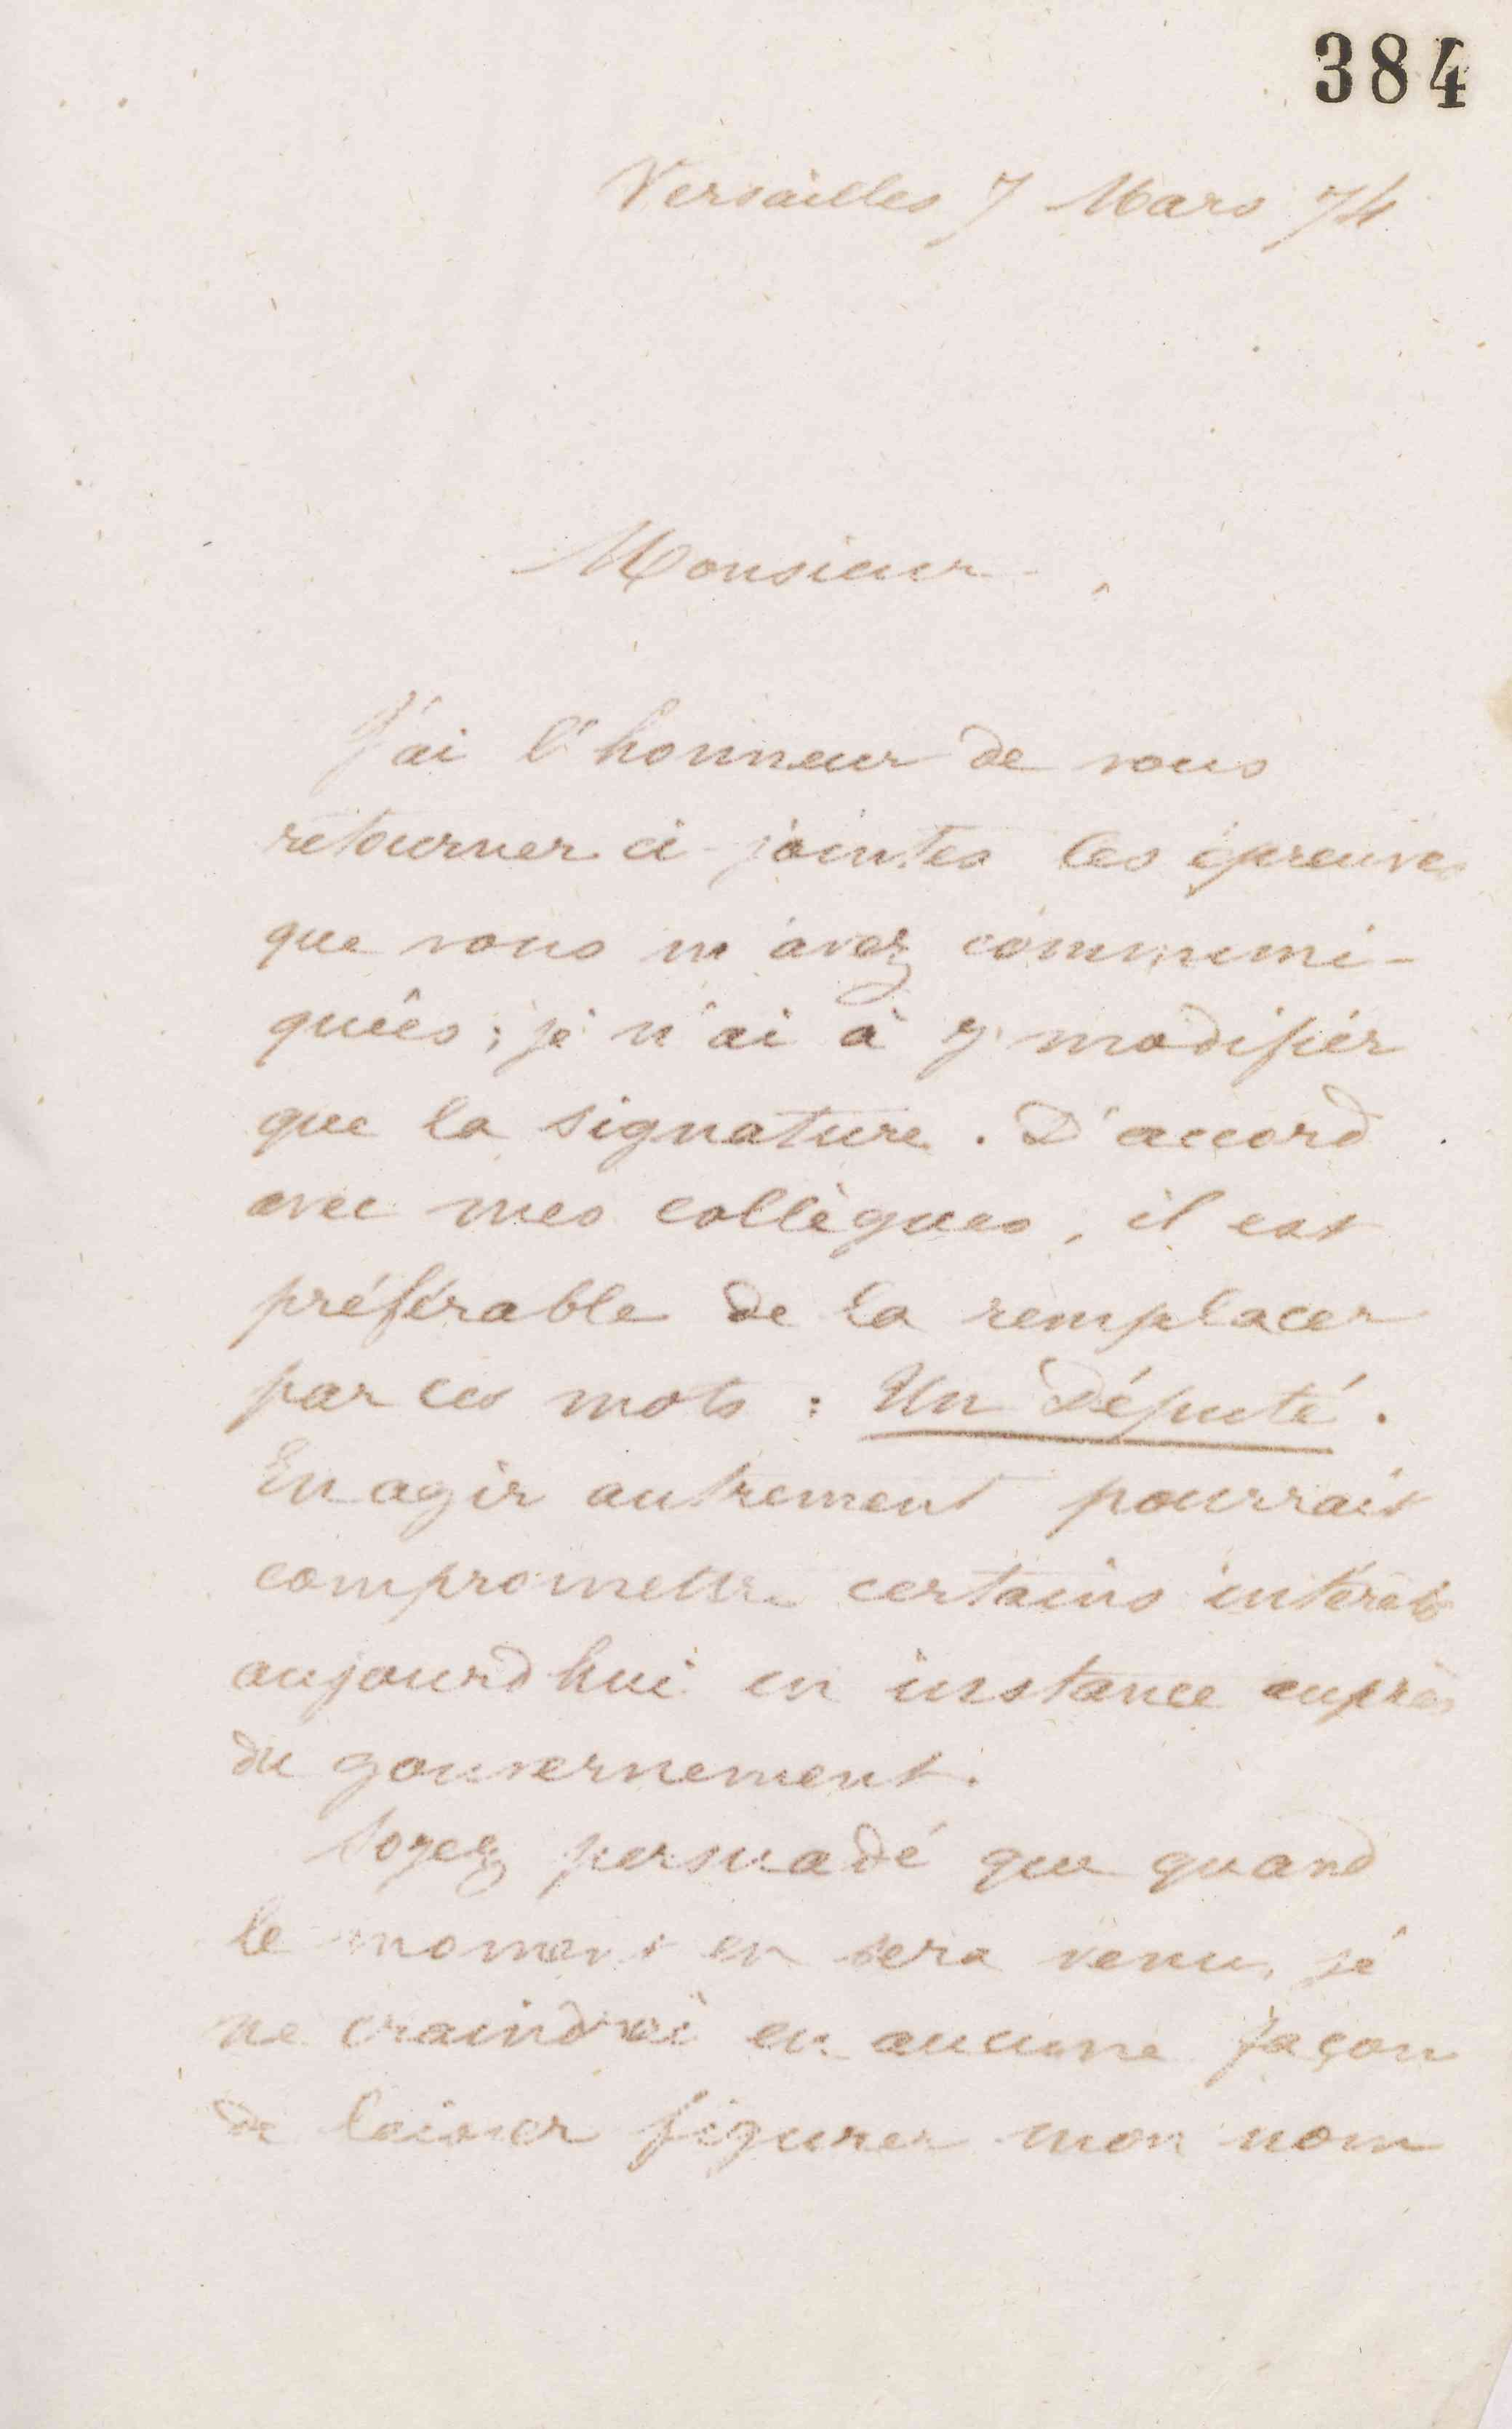 384
Versailles 7 Mars 74
Monsieur,
J'ai l'honneur de vous
retourner ci-jointes les épreuves
que vous m'avez communi-
quées ; je n'ai à y modifier
que la signature. D'accord
avec mes collègues, il est
préférable de la remplacer
par ces mots : Un Député.
En agir autrement pourrait
compromettre certains intérêts
aujourd'hui en instance auprès
du gouvernement.
Soyez persuadé que quand
le moment en sera venu, je
ne craindrai en aucune façon
de laisser figurer mon nom